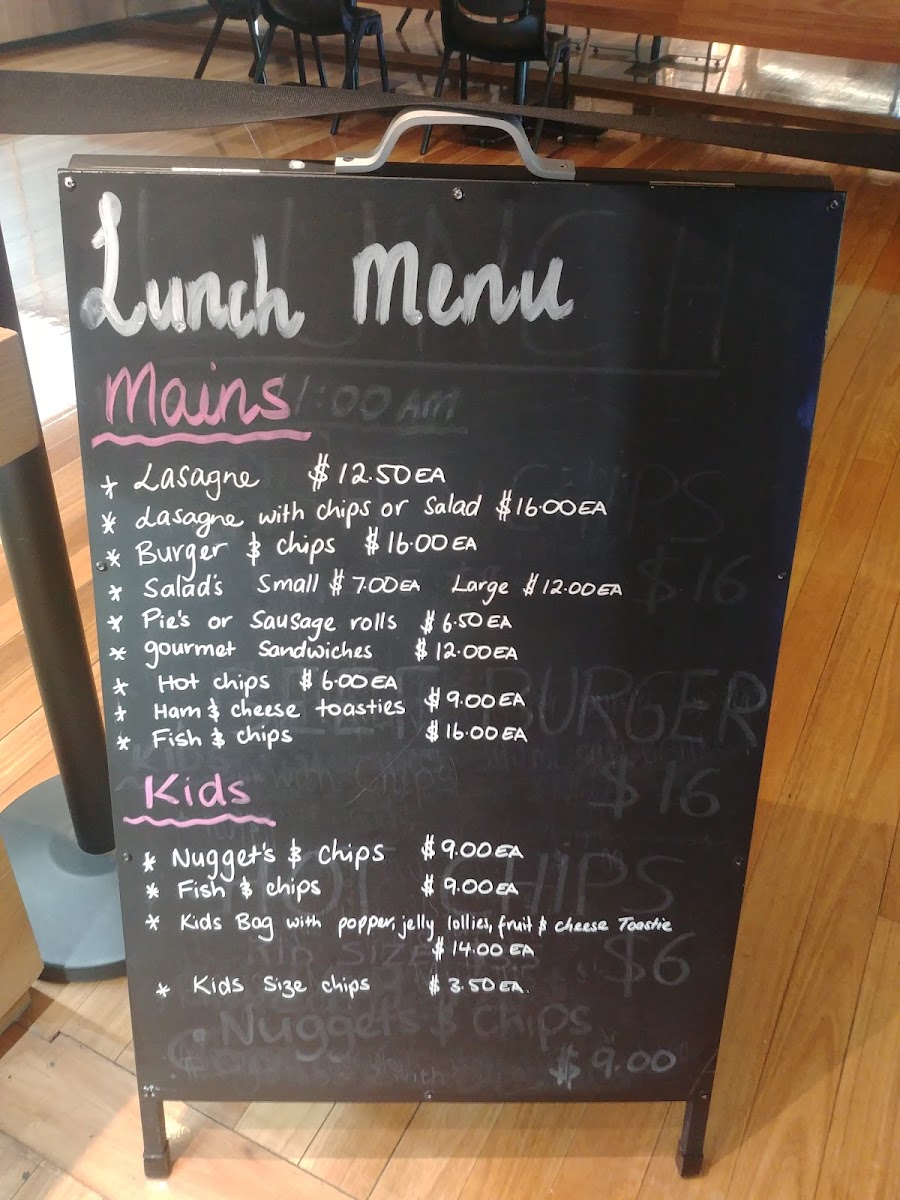 Lunch Menu
Mains
11:00 AM
* Lasagne $12.50 EA
* Lasagne with chips or Salad $16.00 EA
* Burger & chips $16.00 EA
* Salad's Small $7.00 EA Large $12.00 EA
* Pie's or Sausage rolls $6.50 EA
* gourmet Sandwiches $12.00 EA
* Hot chips $6.00 EA
* Ham & cheese toasties $9.00 EA
* Fish & chips $16.00 EA
Kids
* Nugget's & chips $9.00 EA
* Fish & chips $9.00 EA
* Kids Bag with popper, jelly lollies, fruit & cheese Toastie
$14.00 EA
* Kids Size chips $3.50 EA.
LUNCH
CHIPS
$16
BURGER
$16
HOT CHIPS
$6
Nuggets & chips
$9.00